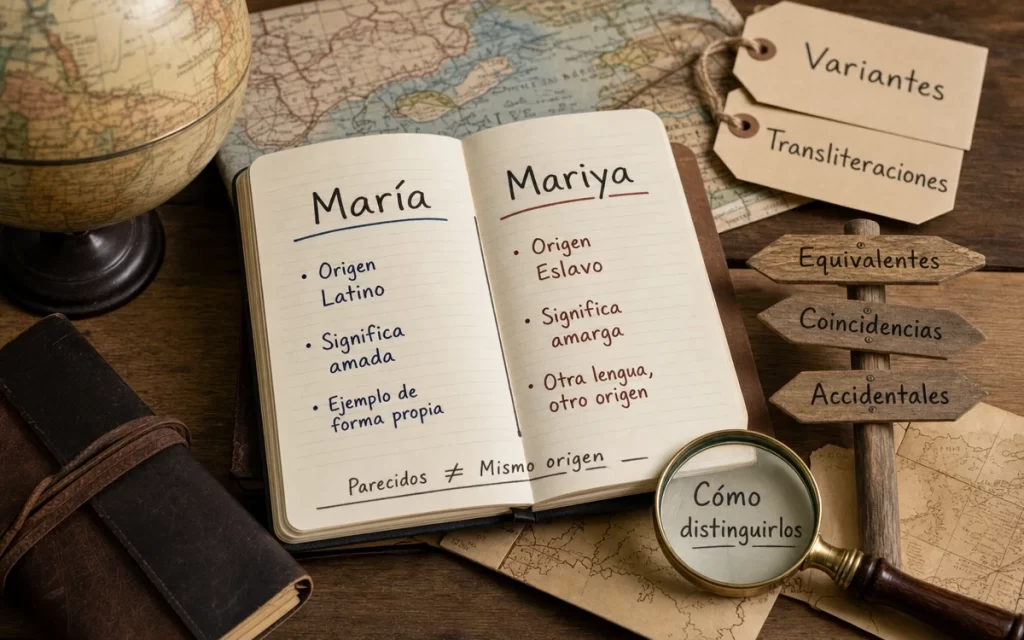 María
• Origen
Latino
• Significa
amada
• Ejemplo de
forma propia
Mariya
• Origen
Eslavo
• Significa
amarga
• Otra lengua,
otro origen
Parecidos ≠ Mismo origen —
Variantes
Transliteraciones
Equivalentes
Coincidencias
Accidentales
Cómo
distinguirlos